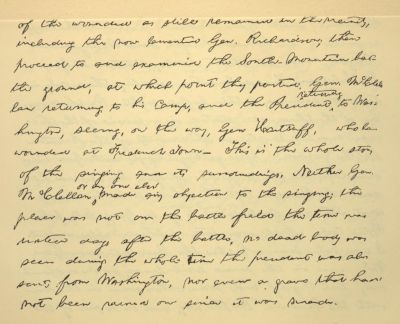 of the wounded as still remained in the vicinity,
including the now lamented Gen. Richardson; then
proceed to and examined the South-Mountain bat-
tle ground, at which point they parted, Gen. McClel-
lan returning to his Camp, and the President returning to Was-
hington, seeing, on the way, Gen Hartsuff, who lay
wounded at Frederick Town. This is the whole story
of the singing and its surroundings. Neither Gen.
McClellan or any one else made any objection to the singing; the
place was not on the battle field, the time was
sixteen days after the battle, no dead body was
seen during the whole time the president was ab-
sent from Washington, nor even a grave that had
not been rained on since it was made.